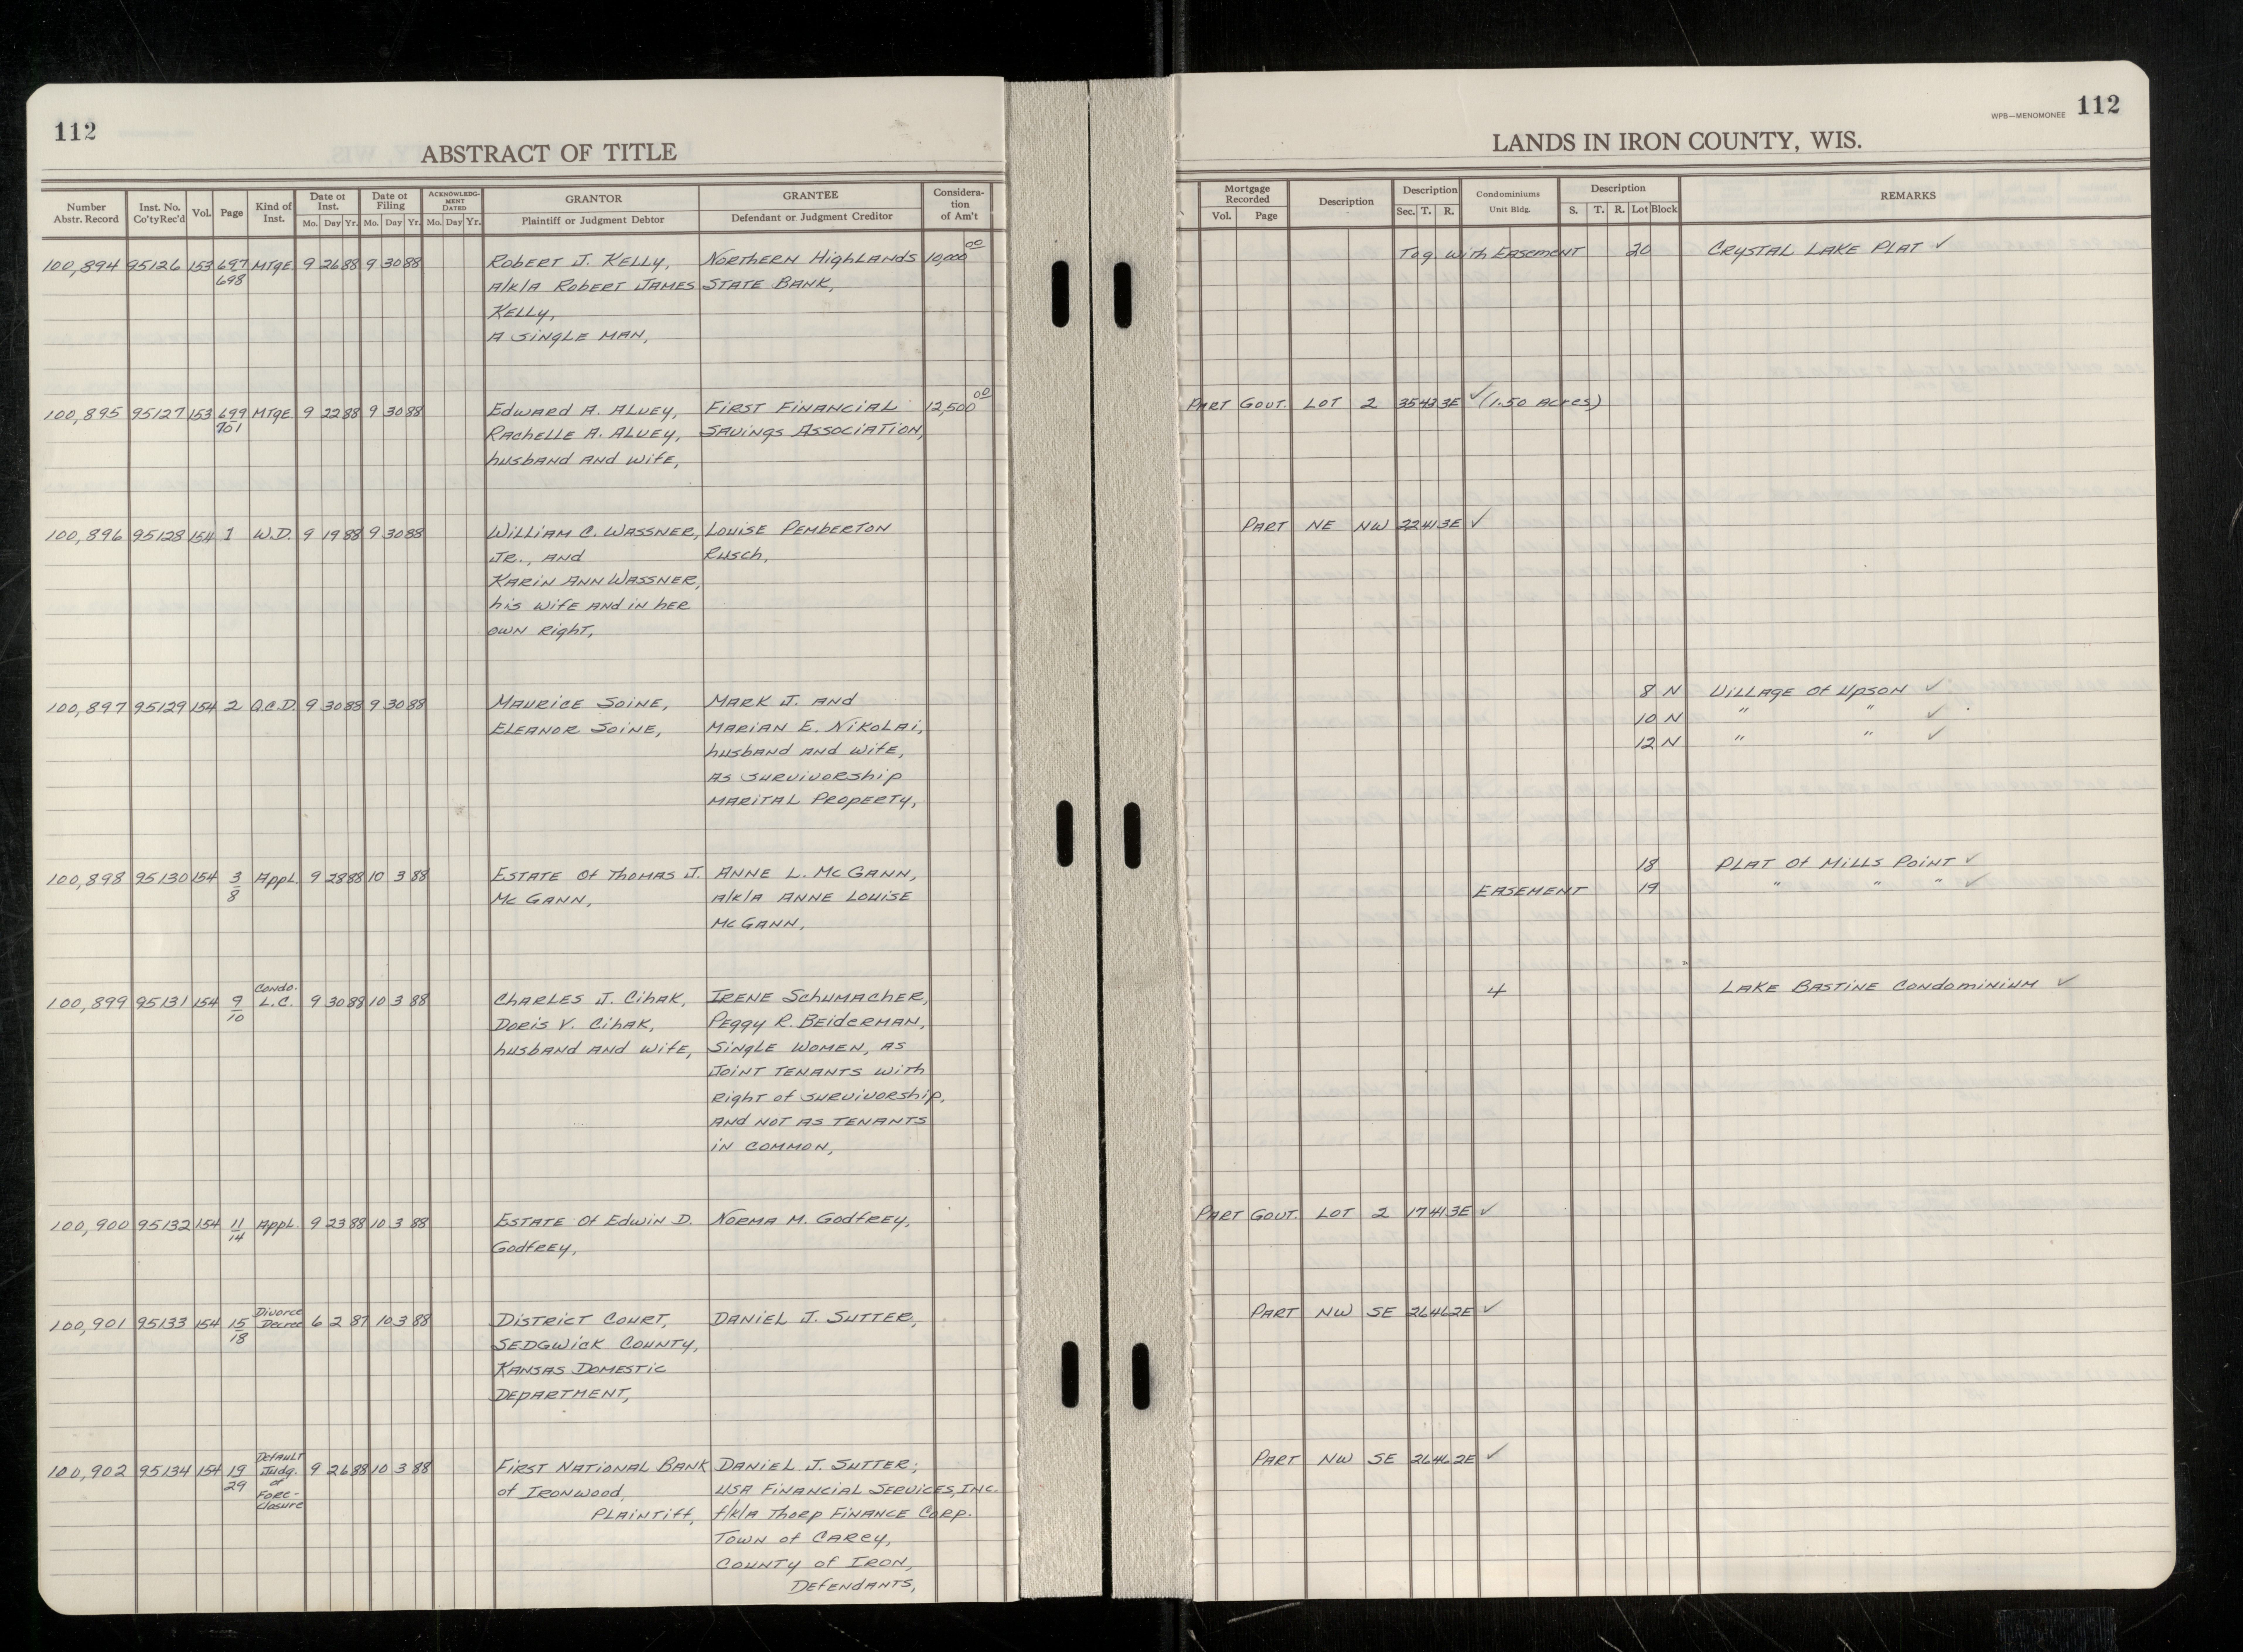 112
ABSTRACT OF TITLE
Number Abstr. Record | Inst. No. Co'ty Rec'd | Vol. | Page | Kind of Inst. | Date of Inst. Mo. Day Yr. | Date of Filing Mo. Day Yr. | ACKNOWLEDGMENT DATED Mo. Day Yr. | GRANTOR Plaintiff or Judgment Debtor | GRANTEE Defendant or Judgment Creditor | Consideration of Am't
100,894 95126 153 697 MTGE 9 26 88 9 30 88 ROBERT J. KELLY, NORTHERN HIGHLANDS 10,000 00
698 A/K/A ROBERT JAMES STATE BANK,
KELLY,
A SINGLE MAN,
100,895 95127 153 699 MTGE 9 22 88 9 30 88 EDWARD A. ALVEY, FIRST FINANCIAL 12,500 00
701 RACHELLE A. ALVEY, SAVINGS ASSOCIATION,
HUSBAND AND WIFE,
100,896 95128 154 1 W.D. 9 19 88 9 30 88 WILLIAM C. WASSNER, LOUISE PEMBERTON
JR., AND RUSCH,
KARIN ANN WASSNER,
HIS WIFE AND IN HER
OWN RIGHT,
100,897 95129 154 2 Q.C.D. 9 30 88 9 30 88 MAURICE SOINE, MARK J. AND
ELEANOR SOINE, MARIAN E. NIKOLAI,
HUSBAND AND WIFE,
AS SURVIVORSHIP
MARITAL PROPERTY,
100,898 95130 154 3 APPL. 9 28 88 10 3 88 ESTATE OF THOMAS J. ANNE L. MCGANN,
8 MCGANN, A/K/A ANNE LOUISE
MCGANN,
CONDO.
100,899 95131 154 9 L.C. 9 30 88 10 3 88 CHARLES J. CIHAK, IRENE SCHUMACHER,
10 DORIS V. CIHAK, PEGGY R. BEIDERMAN,
HUSBAND AND WIFE, SINGLE WOMEN, AS
JOINT TENANTS WITH
RIGHT OF SURVIVORSHIP,
AND NOT AS TENANTS
IN COMMON,
100,900 95132 154 11 APPL. 9 23 88 10 3 88 ESTATE OF EDWIN D. NORMA M. GODFREY,
14 GODFREY,
Divorce
100,901 95133 154 15 Decree 6 2 87 10 3 88 DISTRICT COURT, DANIEL J. SUTTER,
18 SEDGWICK COUNTY,
KANSAS DOMESTIC
DEPARTMENT,
Default
100,902 95134 154 19 Judg. 9 26 88 10 3 88 FIRST NATIONAL BANK DANIEL J. SUTTER;
29 of OF IRONWOOD, USA FINANCIAL SERVICES, INC.
Fore- PLAINTIFF, F/K/A THORP FINANCE CORP.
closure TOWN OF CAREY,
COUNTY OF IRON,
DEFENDANTS,
WPB—MENOMONEE 112
LANDS IN IRON COUNTY, WIS.
Mortgage Recorded Vol. Page | Description | Description Sec. T. R. | Condominiums Unit Bldg. | Description S. T. R. Lot Block | REMARKS
TOG. WITH EASEMENT 20 CRYSTAL LAKE PLAT ✓
PART GOVT. LOT 2 35 43 3E ✓ (1.50 ACRES)
PART NE NW 22 41 3E ✓
8 N VILLAGE OF UPSON ✓
10 N " " ✓
12 N " " ✓
18 PLAT OF MILLS POINT ✓
EASEMENT 19 " " " ✓
4 LAKE BASTINE CONDOMINIUM ✓
PART GOVT. LOT 2 17 41 3E ✓
PART NW SE 26 46 2E ✓
PART NW SE 26 46 2E ✓